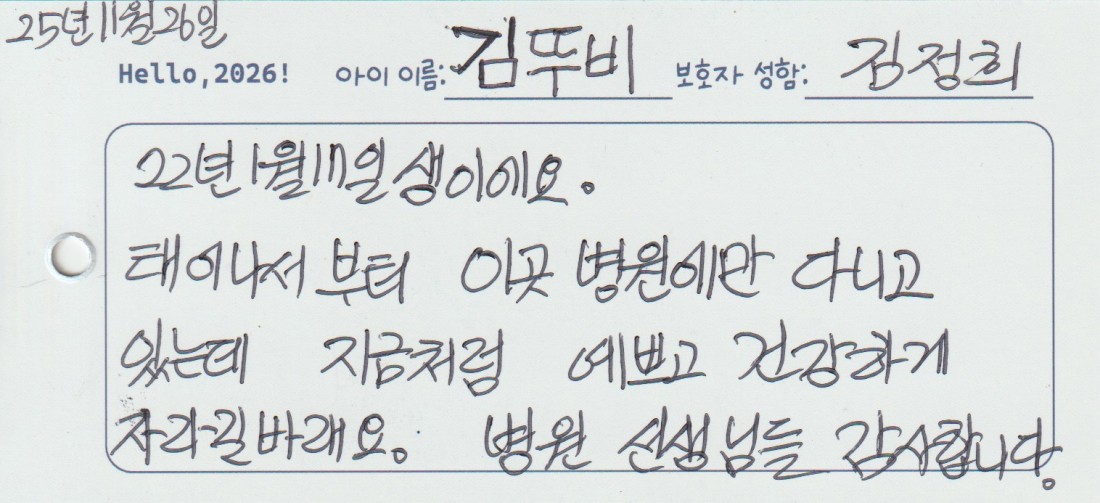 25년 11월 26일
Hello, 2026! 아이 이름: 김뚜비 보호자 성함: 김정희
22년 1월 17일 생이에요.
태어나서 부터 이곳 병원에만 다니고
있는데 지금처럼 예쁘고 건강하게
자라길바래요. 병원 선생님들 감사합니다.